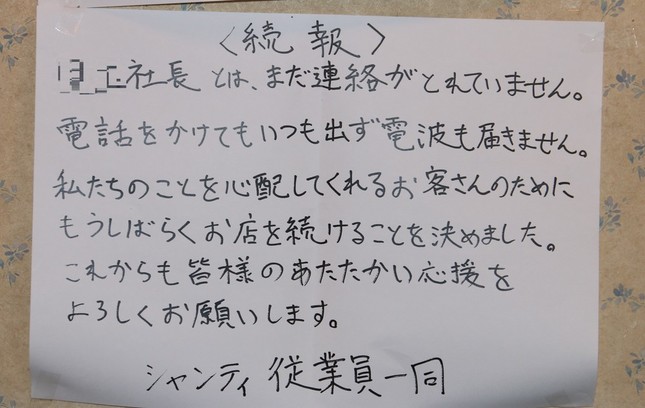 〈続報〉
社長とは、まだ連絡がとれていません。
電話をかけてもいつも出ず電波も届きません。
私たちのことを心配してくれるお客さんのために
もうしばらくお店を続けることを決めました。
これからも皆様のあたたかい応援を
よろしくお願いします。
シャンティ従業員一同